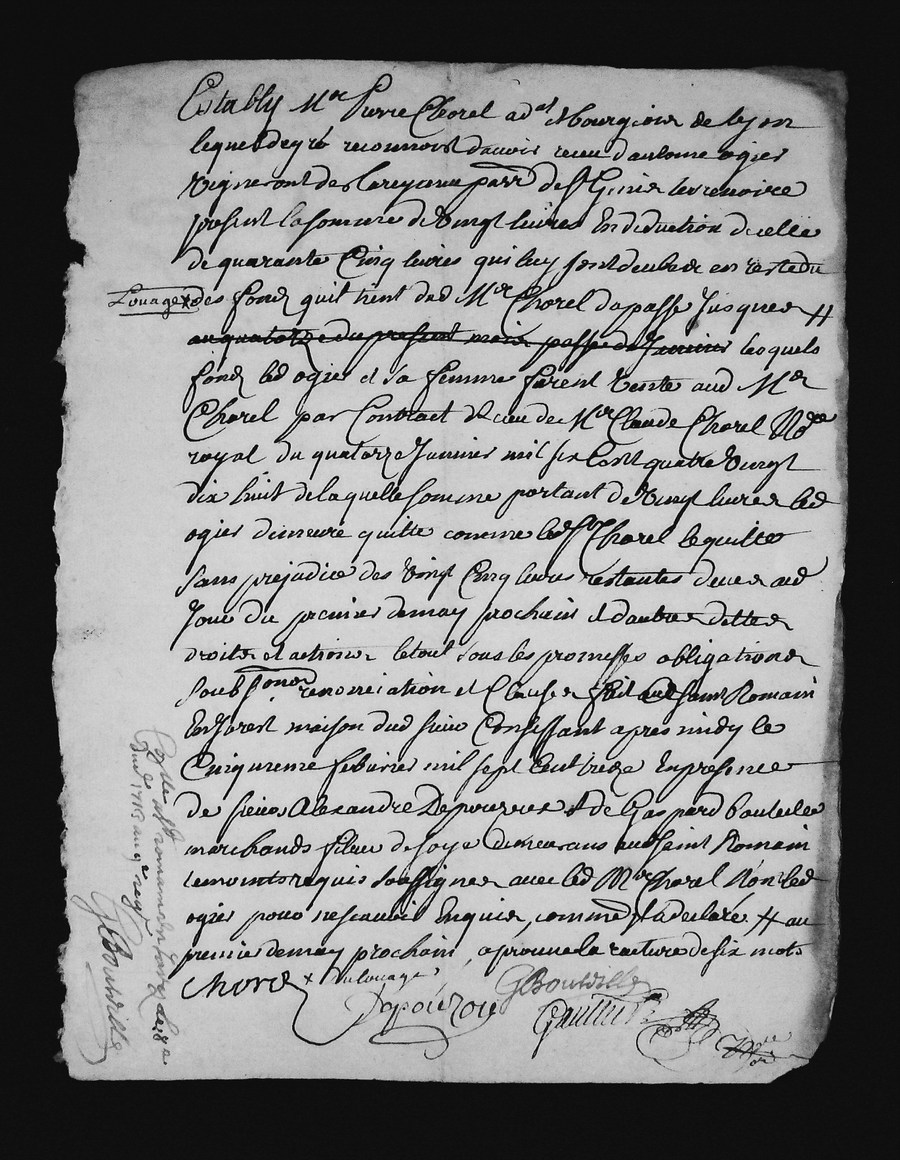 Establÿ Mre Pierre Chorel adat et bourgeois de lyon
lequel degré reconnoist davoir receu dantoine ogier
vigneront de parr. de St Genis terrenoire
present la somme de vingt livres En deduction de celle
de quarante Cinq livres qui luy sont deubes en reste du
Louage des fonds quil tient dud Mr Chorel du passé Jusques #
au quatorze du present mois passé de Janvier lesquels
fonds led ogier et sa femme furent vente aud Mr
Chorel par Contract Receu de Mre Claude Chorel Nore
royal du quatorze Janvier mil six Cent quatre vingt
dix huit de laquelle somme portant de vingt livres led
ogier demeure quitte comme led Sr Chorel le quitte
sans prejudice des vingt Cinq livres restantes deues aud
Jour du premier de may prochain et dautres dettes
droits et actions le tout sous les promesses obligations
soubsons renonciation et Clauses fait aud saint Romain
En Jarest maison dud sieur Confessant apres midy le
Cinquieme febvrier mil sept Cent treize En presence
de sieurs Alexandre Depouzois et de Gaspard bouteille
marchands fileur de soye demeurans aud Saint Romain
temoints requis soussignes avec led Mre Chorel Non led
ogier pour ne scavoir Enquis, comme Il a declaré # au
premier de may prochain, aprouve la rature de six mots
Chorel + du louage
Depoizoie GBouteille
Gaultier
Nore
roy
Con.lle a St romain en Jarez le
1713
GBouteille